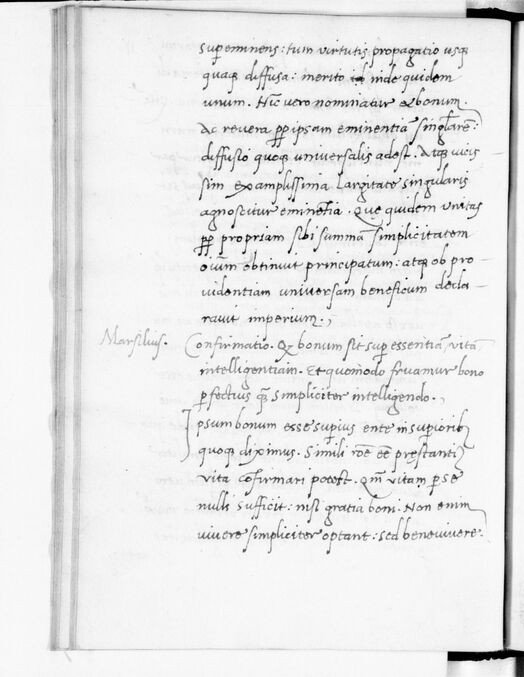 supeminens: tum virtutis propagatio usq̃
quaq̃ diffusa: merito inde quidem
unum. Hic vero nominatur & bonum.
Ac revera ꝓp ipsam eminentiã singlarẽ:
diffusio quoq̃ universalis adest. Atq̃ vicis
sim ex amplissima largitate singularis
agnoscitur eminẽtia. Quę quidem unitas
ꝓp propriam sibi summã simplicitatem
oĩum obtinuit principatum: atq̃ ob pro
videntiam universam beneficum decla
ravit imperium.
Marsilius. Confirmatio. Q̃ bonum sit sup essentiã, vitã
intelligentiam. Et quomodo fruamur bono
ꝑfectius q̃ simpliciter intelligendo.
Ipsum bonum esse supius ente in supiorib
quoq̃ diximus. Simili rõe eẽ pręstanti
vita cõfirmari potest. Qm̃ vitam ꝑ se
nullis sufficit: nisi gratia boni. Non enim
vivere simpliciter optant: sed bene vivere.